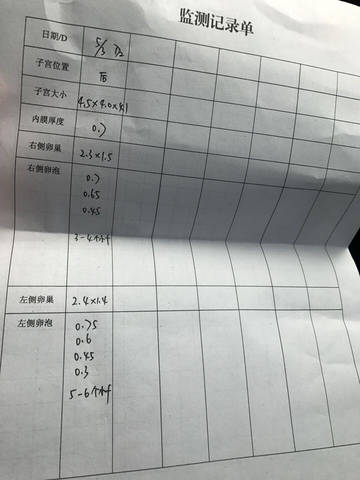 监测记录单
日期/D 5/3 D2
子宫位置 后
子宫大小 4.5×4.0×4.1
内膜厚度 0.7
右侧卵巢 2.3×1.5
右侧卵泡 0.7
0.65
0.45
3-4个f
左侧卵巢 2.4×1.4
左侧卵泡 0.75
0.6
0.45
0.3
5-6个f